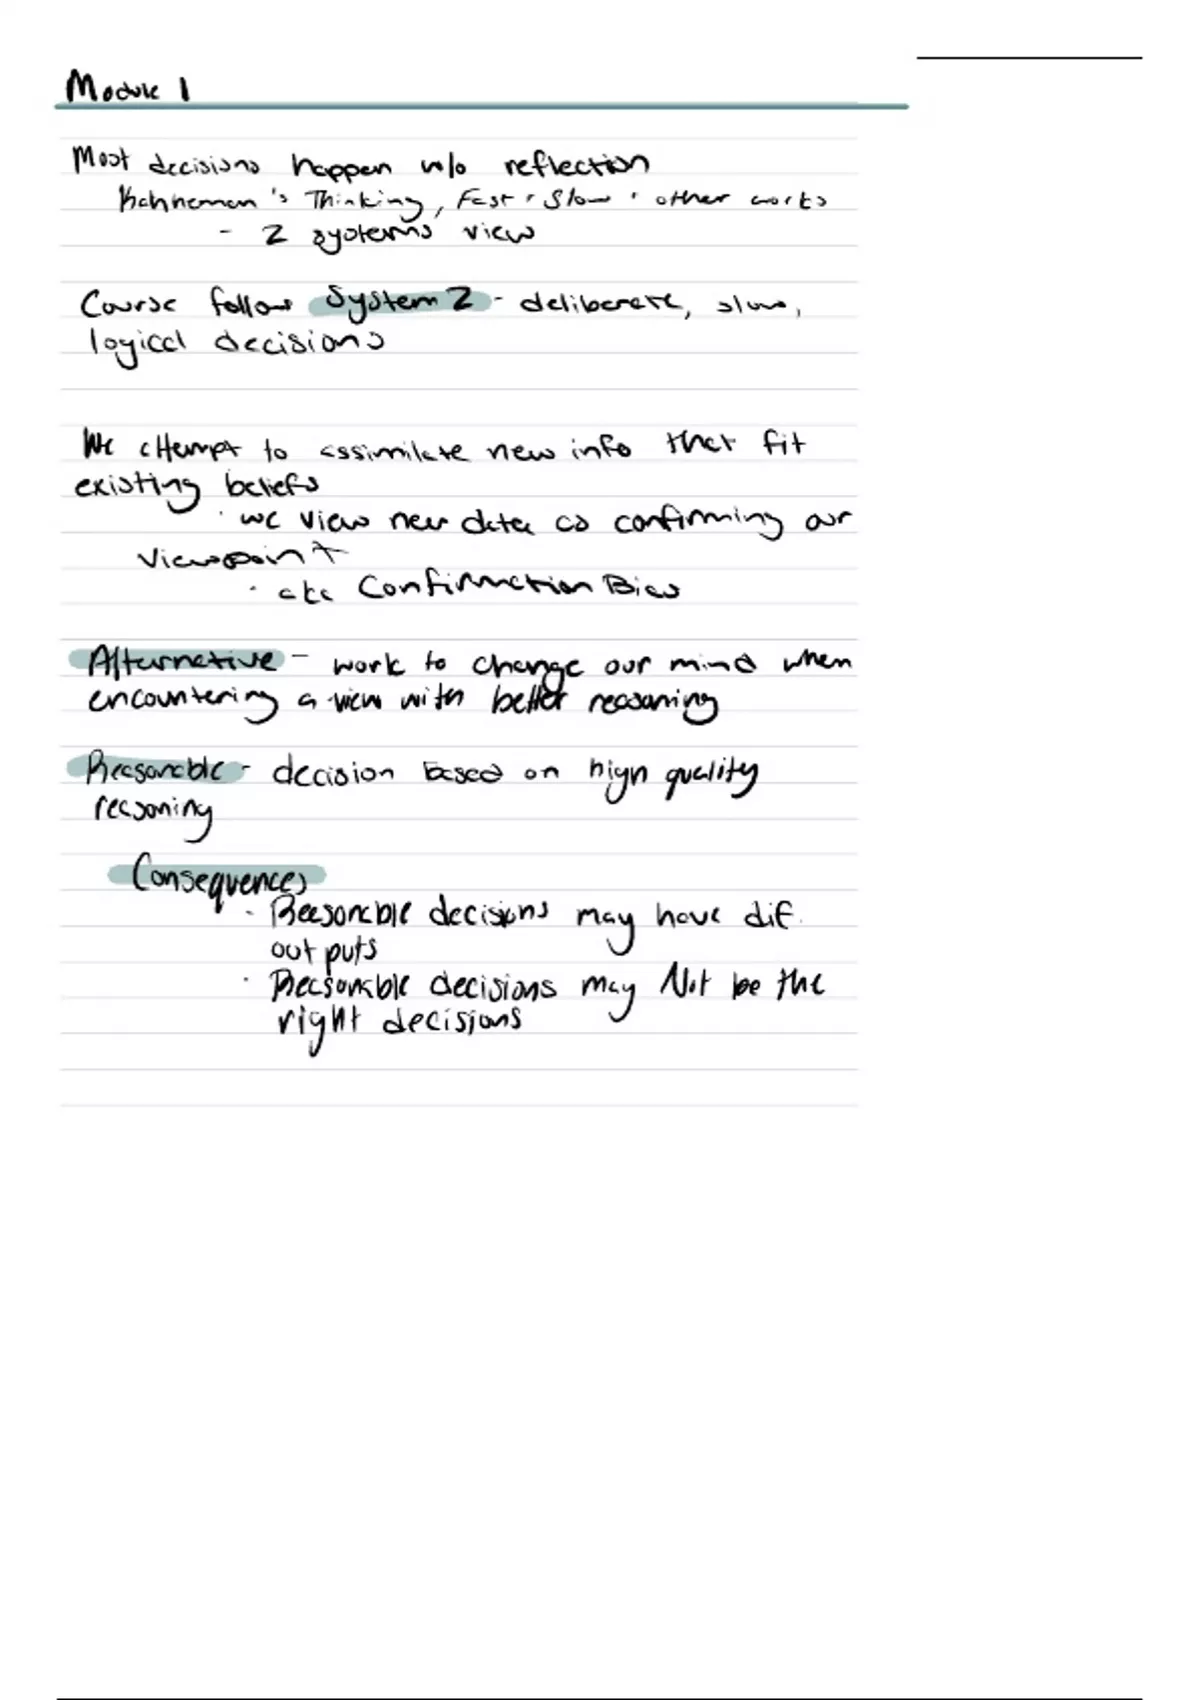 Module 1
Most decisions happen w/o reflection
Kahneman's Thinking, Fast + Slow + other works
- 2 systems view
Course follows System 2 - deliberate, slow,
logical decisions
We attempt to assimilate new info that fit
existing beliefs
· we view new data as confirming our
viewpoint
· aka Confirmation Bias
Alternative - work to change our mind when
encountering a view with better reasoning
Reasonable - decision based on high quality
reasoning
Consequences
· Reasonable decisions may have dif.
outputs
· Reasonable decisions may Not be the
right decisions